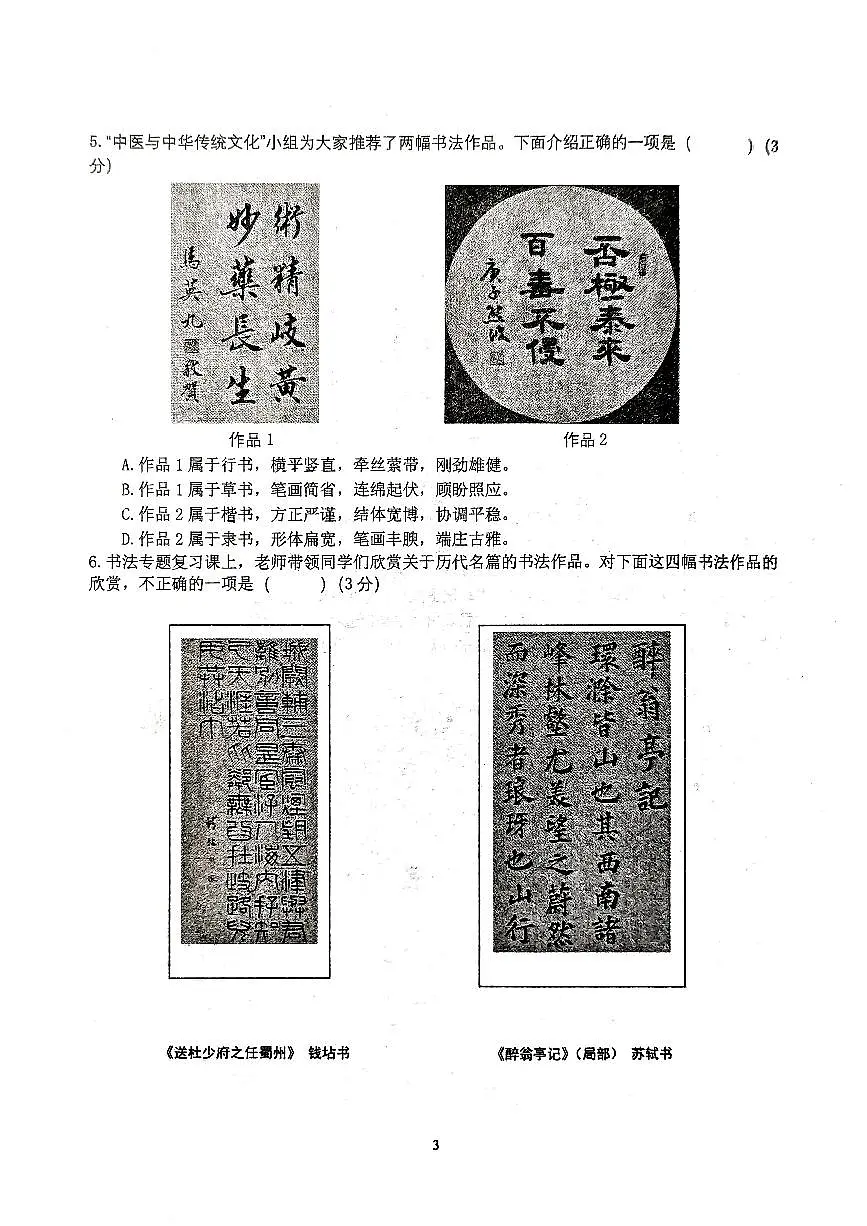 5."中医与中华传统文化"小组为大家推荐了两幅书法作品。下面介绍正确的一项是 (      ) (3
分)
術精岐黄
妙藥長生
馬英九
敬賀
否極泰來
百毒不侵
庚子
作品 1
作品 2
A.作品 1 属于行书，横平竖直，牵丝萦带，刚劲雄健。
B.作品 1 属于草书，笔画简省，连绵起伏，顾盼照应。
C.作品 2 属于楷书，方正严谨，结体宽博，协调平稳。
D.作品 2 属于隶书，形体扁宽，笔画丰腴，端庄古雅。
6.书法专题复习课上，老师带领同学们欣赏关于历代名篇的书法作品。对下面这四幅书法作品的
欣赏，不正确的一项是 (      ) (3 分)
城闕輔三秦風煙望五津與君
離別意同是宦游人海内存知
己天涯若比鄰無爲在岐路兒
女共沾巾
醉翁亭記
環滁皆山也其西南諸
峰林壑尤美望之蔚然
而深秀者琅琊也山行
《送杜少府之任蜀州》 钱坫书
《醉翁亭记》（局部） 苏轼书
3